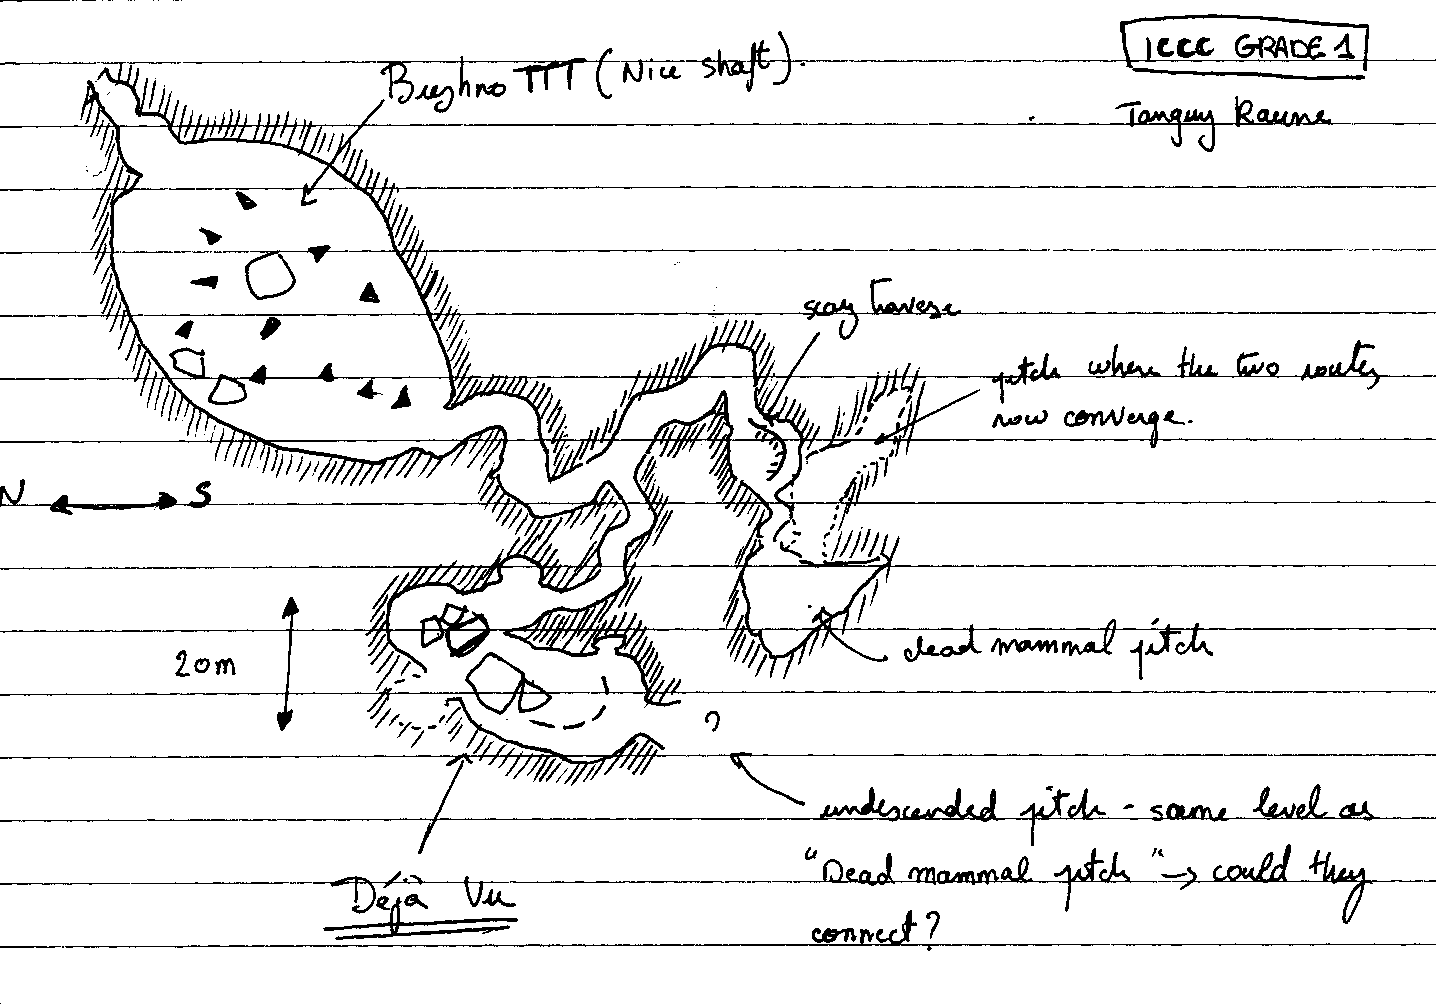 ICCC GRADE 1
Tanguy Racine
Brezhno TTT (Nice shaft).
scary traverse
pitch where the two routes
now converge.
N S
20m
dead mammal pitch
?
undescended pitch - same level as
"Dead mammal pitch" → could they
connect?
Déjà Vu